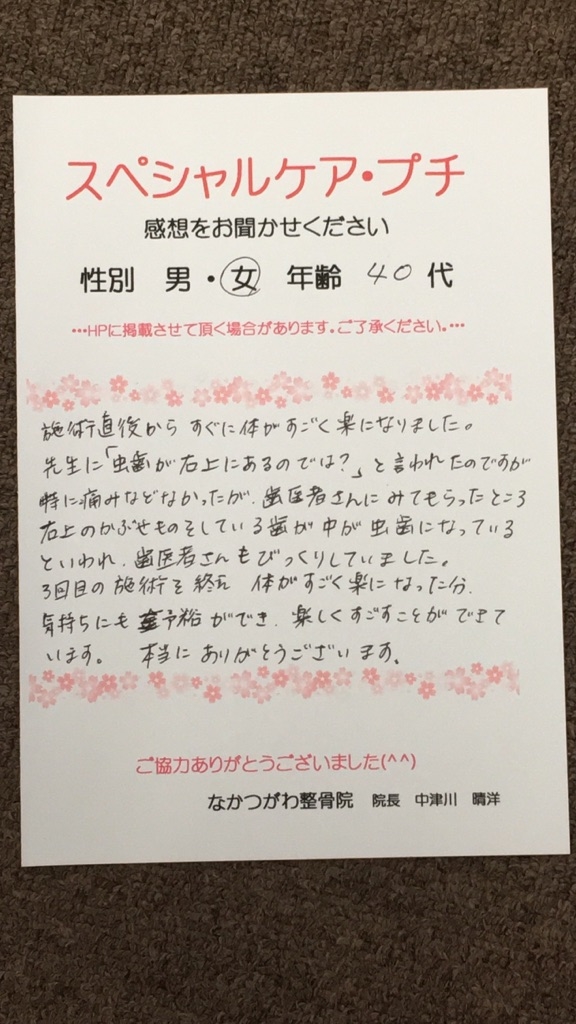 スペシャルケア・プチ
感想をお聞かせください
性別 男・女 年齢 40 代
…HPに掲載させて頂く場合があります。ご了承ください。…
施術直後から すぐに体がすごく楽になりました。
先生に「虫歯が右上にあるのでは?」と言われたのですが
特に痛みなどなかったが、歯医者さんにみてもらったところ
右上のかぶせものをしている歯が中が虫歯になっている
といわれ、歯医者さんもびっくりしていました。
3回目の施術を終え 体がすごく楽になった分、
気持ちにも 余裕ができ、楽しくすごすことができて
います。 本当に ありがとうございます。
ご協力ありがとうございました(^^)
なかつがわ整骨院 院長 中津川 晴洋